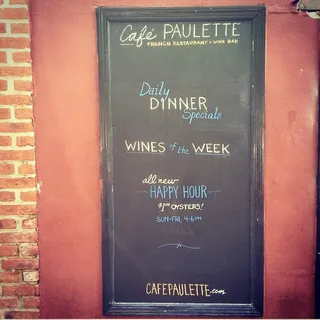 Café PAULETTE
FRENCH RESTAURANT & WINE BAR
Daily
DINNER
Specials
WINES of the WEEK
all new
HAPPY HOUR
OYSTERS!
SUN-FRI, 4-6pm
CAFEPAULETTE.com